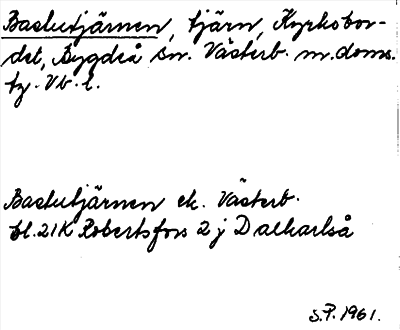 Bastutjärnen, tjärn, Kyrkobor-
det, Bygdeå sn. Västerb. m. doms.
fg. Vb. l.
Bastutjärnen ek. Västerb.
bl. 21K Robertsfors 2 j Dalkarlså
S.P. 1961.